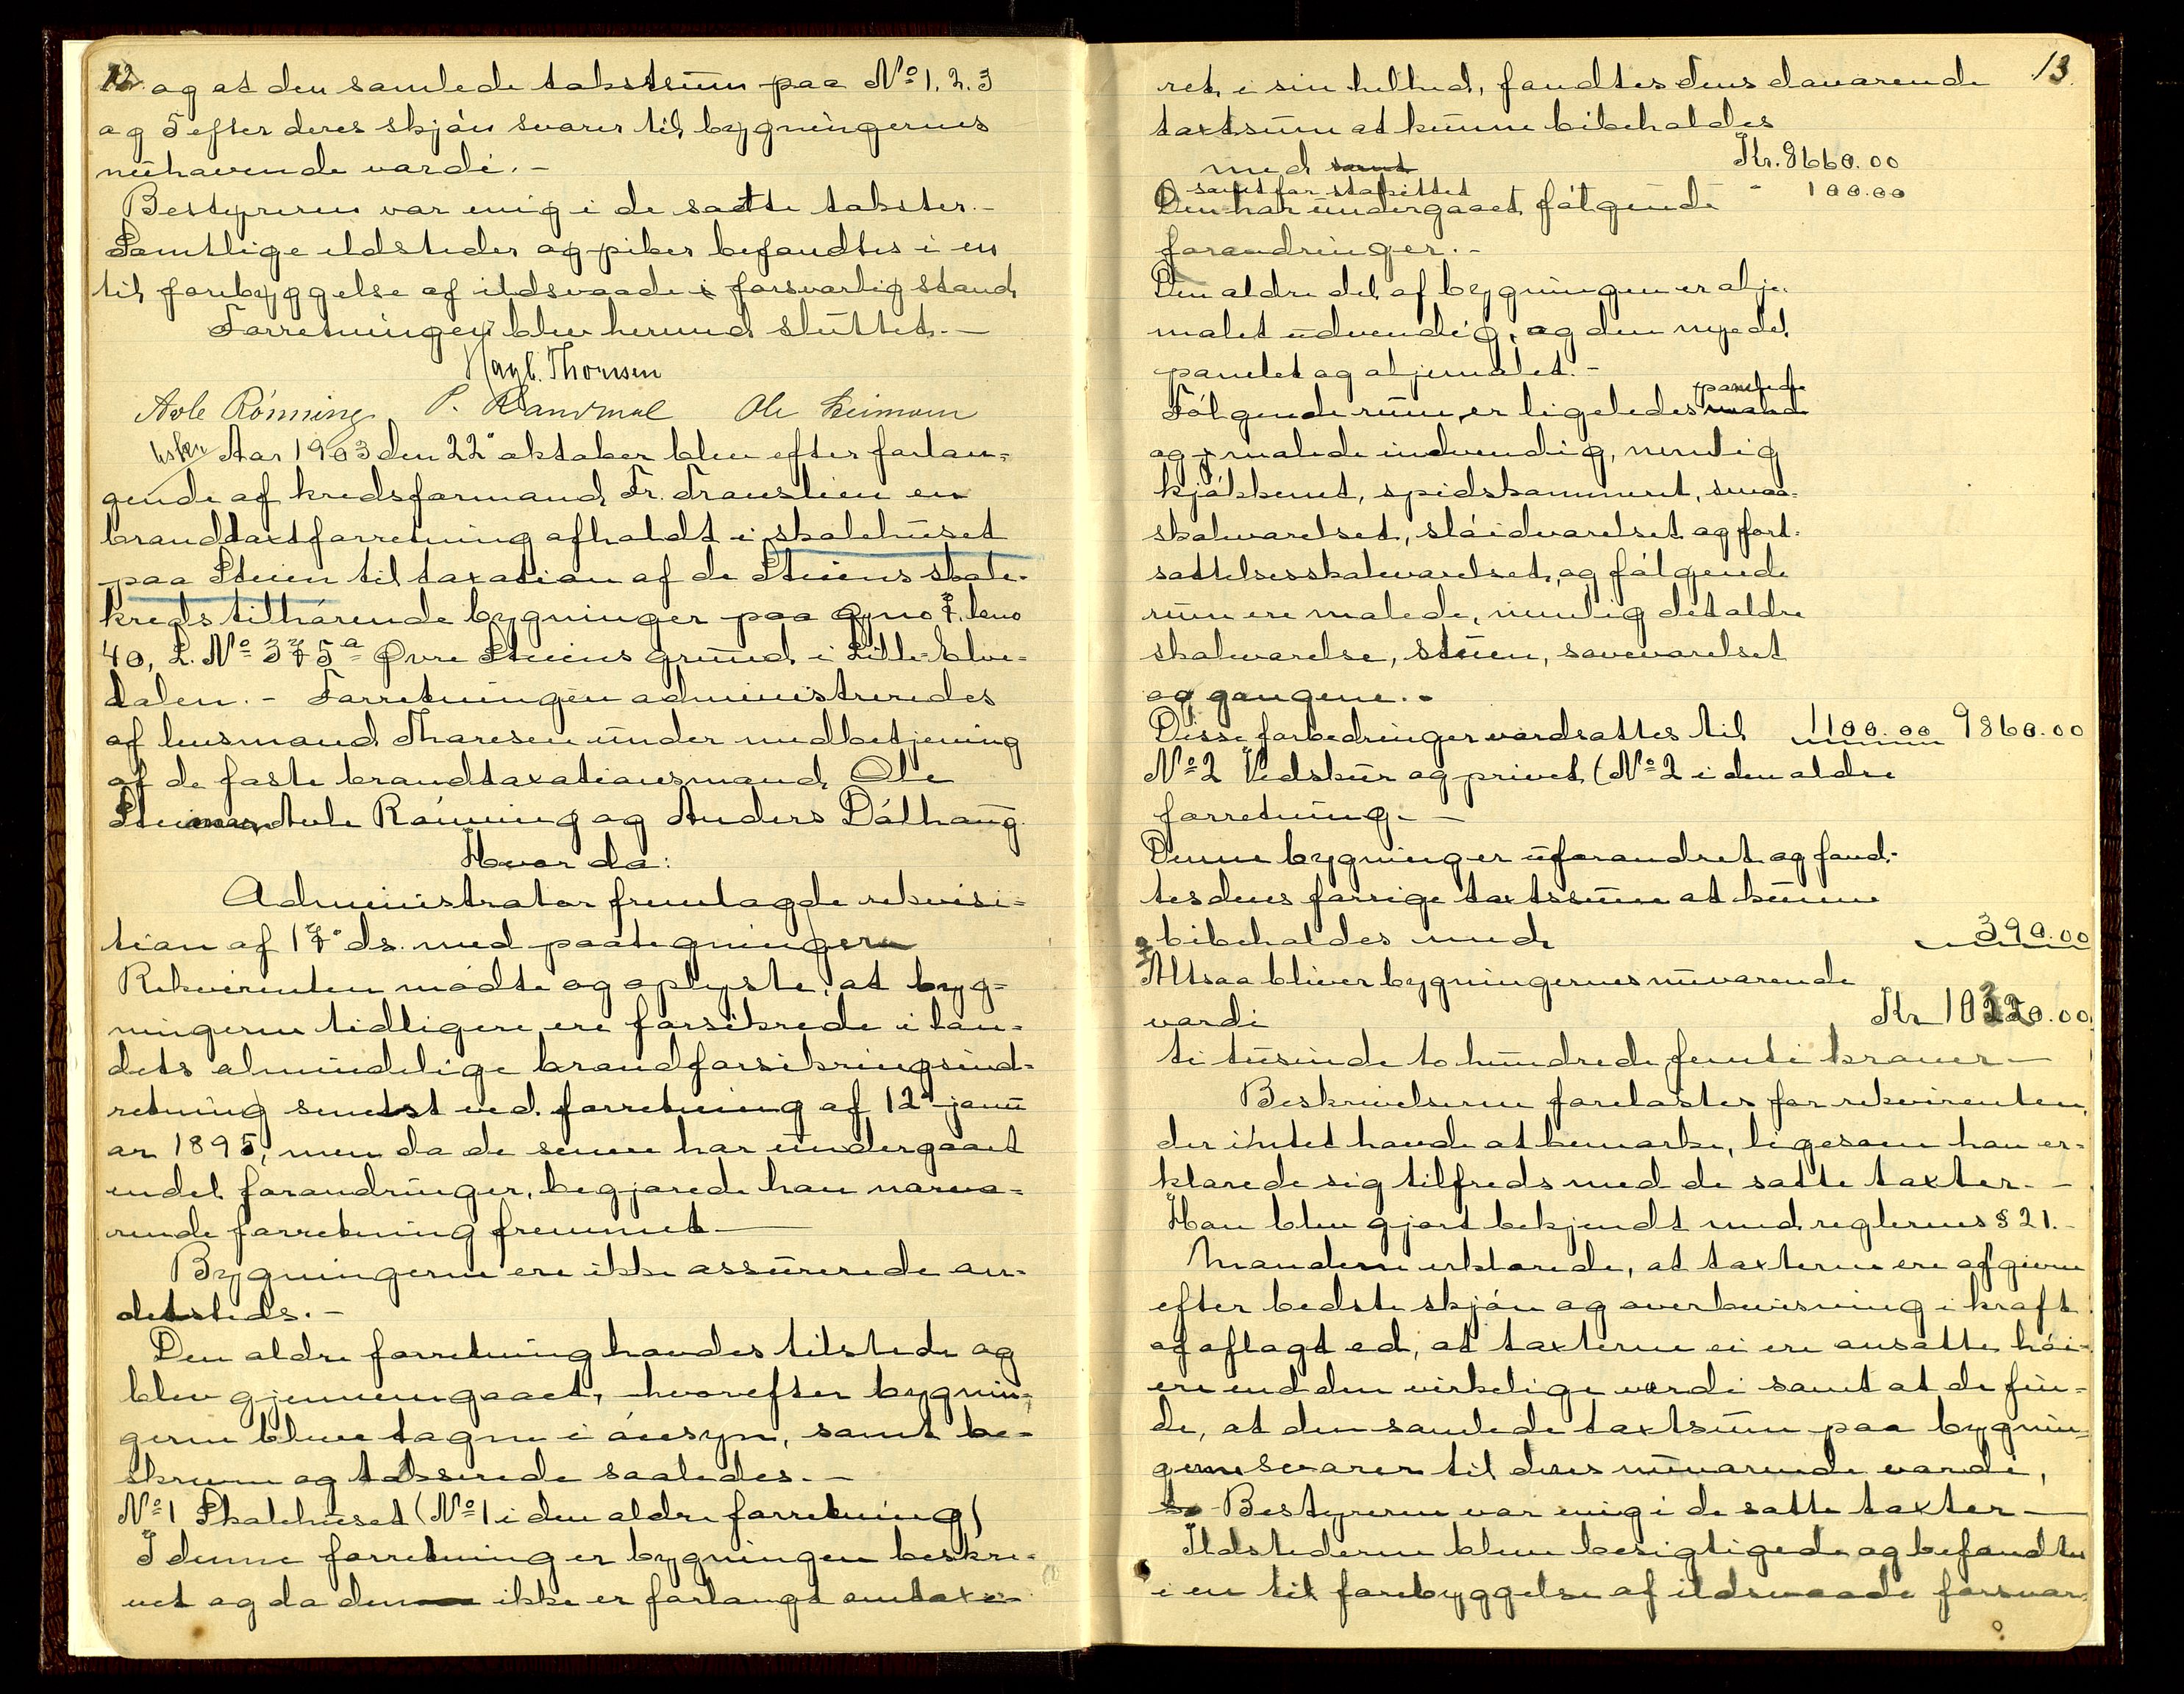 12. og at den samlede takstsum paa No 1, 2, 3
og 5 efter deres skjön svarer til bygningernes
nuhavende værdi. -
Bestyreren var enig i de satte takster. -
Samtlige ildsteder og piber befandtes i en
til forebyggelse af ildsvaade forsvarlig stand,
Forretningen blev hermed sluttet. -
Hagb. Thoresen
Avle Rönning P. Ole Steimoen
Aar 1903 den 22' oktober blev efter forlan=
gende af kredsformand Fr. Transtien en
brandtaxtforretning afholdt i skolehuset
paa Steien til taxation af de Steiens skole-
kreds tilhörende bygninger paa gno 7, bno
40, L. No 375a Øvre Steiens grund i Lille-Elve=
dalen. - Forretningen administreredes
af lensmand Thoresen under medbetjening
af de faste brandtaxationsmænd Ole
Steimoen, Avle Rönning og Anders Dölhaug.
Hvor da:
Administrator fremlagde rekvisi=
tion af 17' ds. med paategninger
Rekvirenten mödte og oplyste, at byg=
ningerne tidligere ere forsikrede i lan=
dets almindelige brandforsikringsind=
retning senest ved forretning af 12' janu
ar 1895, men da de senere har undergaaet
endel forandringer, begjærede han nærvæ=
rende forretning fremmet -
Bygningerne ere ikke assurerede an=
detsteds. -
Den ældre forretning havdes tilstede og
blev gjennemgaaet, hvorefter bygnin=
gerne bleve tagne i öiesyn, samt be=
skrevne og takserede saaledes. -
No 1 Skolehuset (No 1 i den ældre forretning)
I denne forretning er bygningen beskre=
vet og da den ikke er forlangt omtaxe=
13.
ret i sin helhed, fandtes dens daværende
taxtsum at kunne bibeholdes
med samt Kr. 8660.00
samt for stakittet " 100.00
Den har undergaaet fölgende
forandringer. -
Den ældre del af bygningen er olje-
malet udvendig, og den nye del
panelet og oljemalet. -
panelede
Fölgende rum er ligeledes malede
og malede indvendig, nemlig
kjökkenet, spidskammeret, smaa-
skoleværelset, slöidværelset og fort-
sættelsesskoleværelset, og fölgende
rum ere malede, nemlig det ældre
skoleværelse, stuen, soveværelset
og gangene. -
Disse forbedringer værdsattes til 1100.00 9860.00
No 2 Vedskur og privet (No 2 i den ældre
forretning. -
Denne bygning er uforandret og fand-
tes dens forrige taxtssum at kunne
bibeholdes med 390.00
Altsaa bliver bygningernes nuværende
værdi Kr 10250.00
ti tusinde to hundrede femti kroner -
Beskrivelserne forelæstes for rekvirenten,
der intet havde at bemærke, ligesom han er=
klærede sig tilfreds med de satte taxter. -
Han blev gjort bekjendt med reglernes § 21. -
Mændene erklærede, at taxterne ere afgivne
efter bedste skjön og overbevisning i kraft
af aflagt ed, at taxterne ei ere ansatte höi=
ere end den virkelige værdi samt at de fin=
de, at den samlede taxtsum paa bygnin=
gerne svarer til deres nuværende værdi,
Bestyreren var enig i de satte taxter -
Ildstederne bleve besigtigede og befandtes
i en til forebyggelse af ildsvaade forsvar